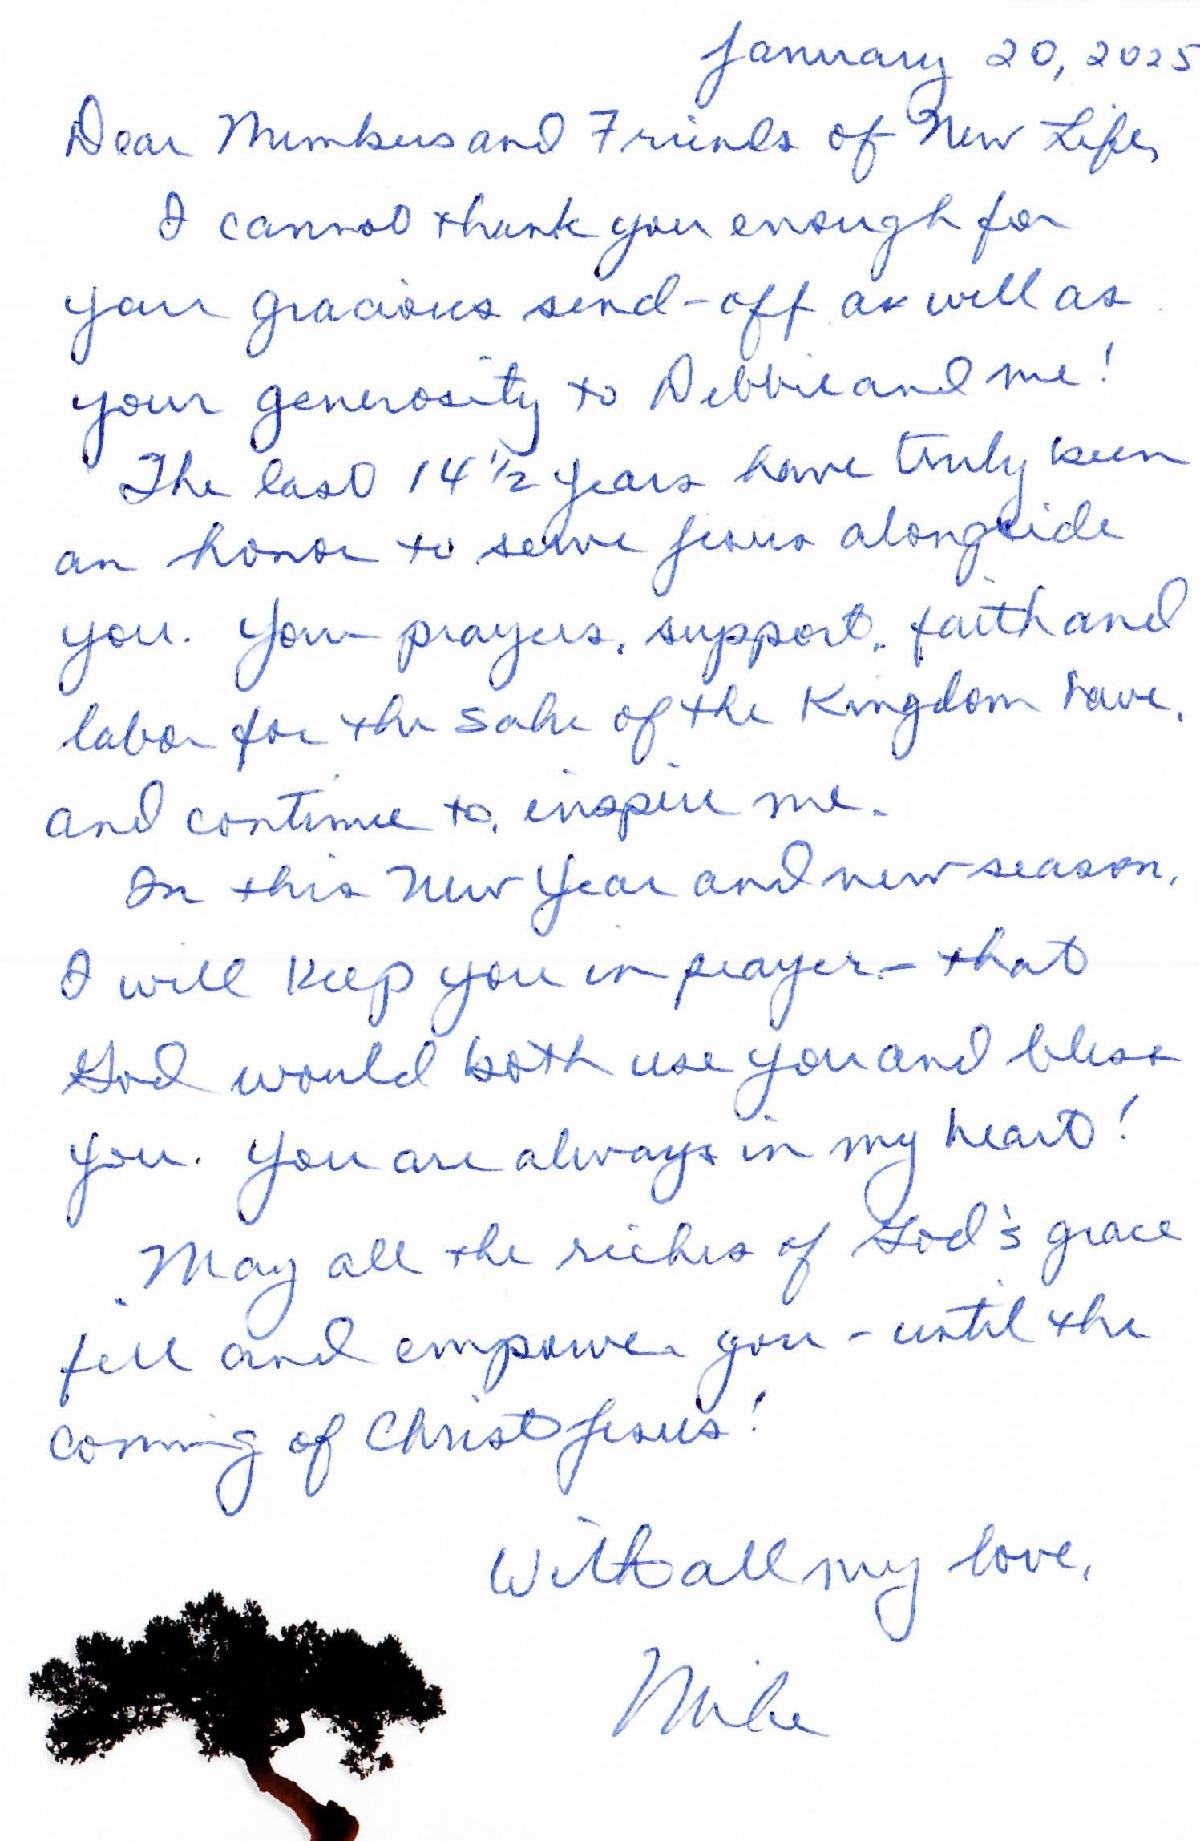 January 20, 2025
Dear Members and Friends of New Life,
I cannot thank you enough for
your gracious send-off as well as
your generosity to Debbie and me!
The last 14 1/2 years have truly been
an honor to serve Jesus alongside
you. Your prayers, support, faith and
labor for the sake of the Kingdom have,
and continue to, inspire me.
In this New Year and new season,
I will keep you in prayer - that
God would both use you and bless
you. You are always in my heart!
May all the riches of God's grace
fill and empower you - until the
coming of Christ Jesus!
With all my love,
Mike